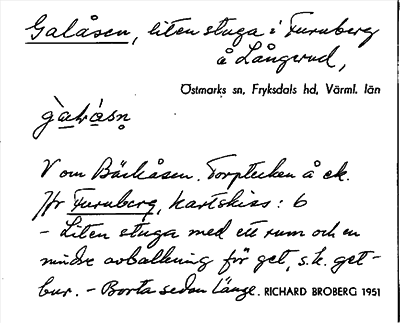 Galåsen, liten stuga i Furuberg
å Långerud,
Östmarks sn, Fryksdals hd, Värml. län
V om Bäckåsen. Torptecken å ek.
Hr Furuberg, kartskiss: 6
- Liten stuga med ett rum och en
mindre avbalkning för get, s.k. get-
bur. - Borta sedan länge. RICHARD BROBERG 1951